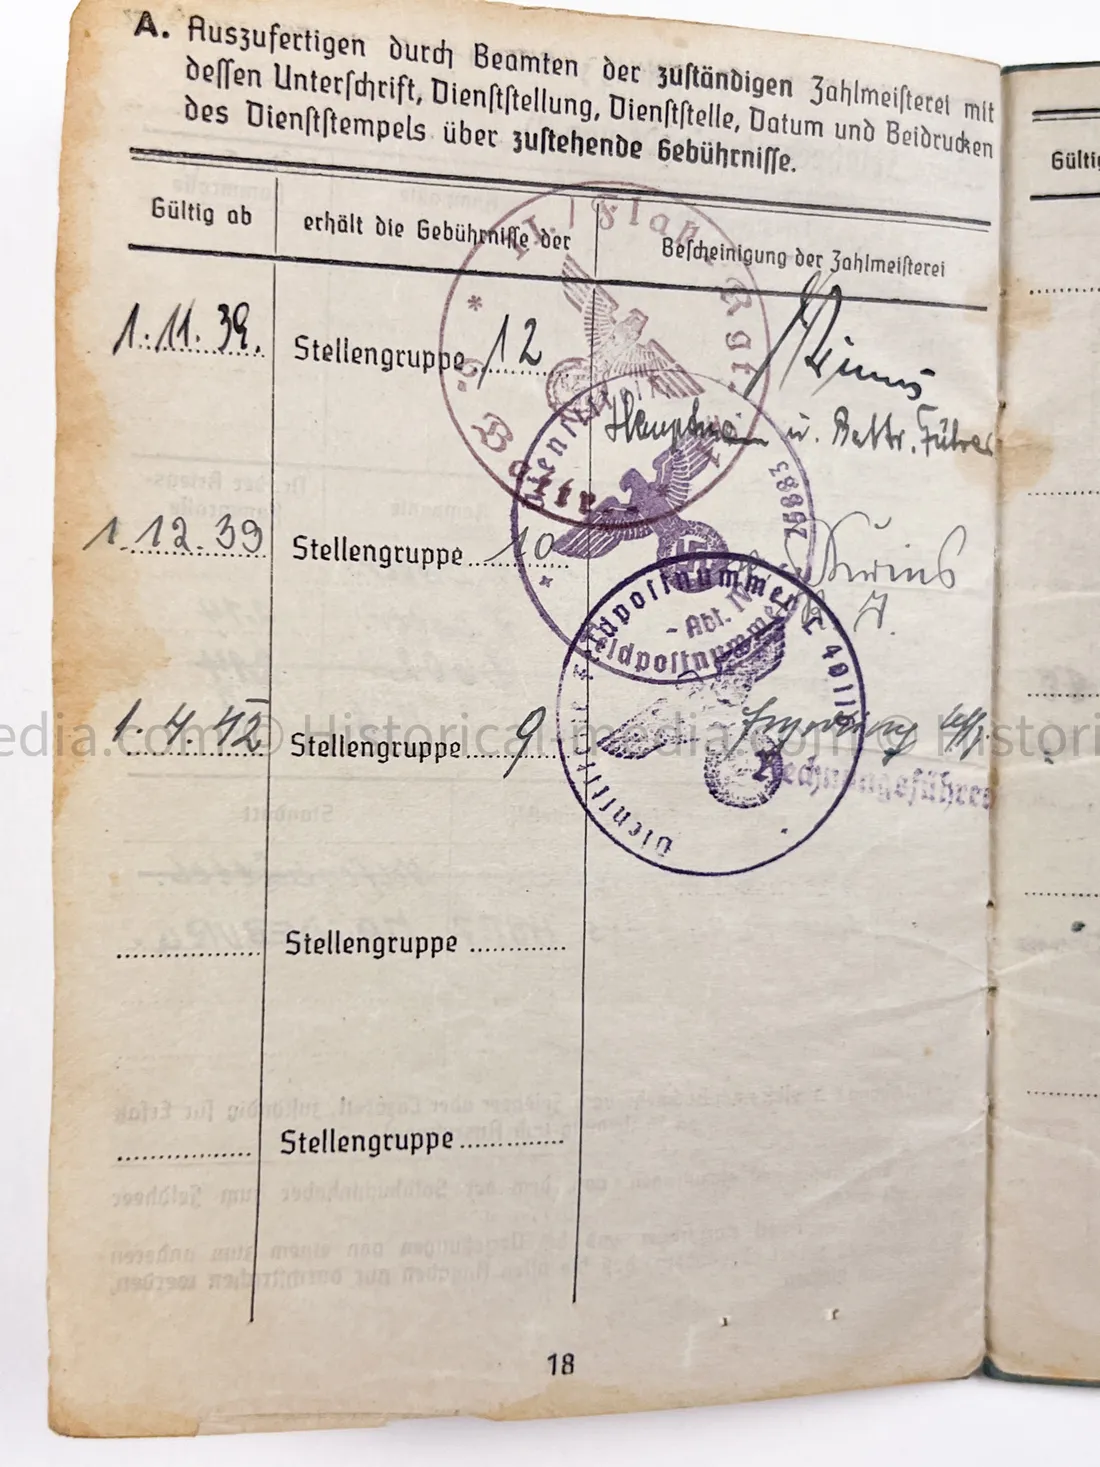 A. Auszufertigen durch Beamten der zuständigen Zahlmeisterei mit
dessen Unterschrift, Dienststellung, Dienststelle, Datum und Beidrucken
des Dienststempels über zustehende Gebührnisse.
Gültig ab
erhält die Gebührnisse der
Bescheinigung der Zahlmeisterei
1.11.39.
Stellengruppe 12
Hauptmann u. Battr. Führer
1.12.39
Stellengruppe 10
K. A.
1.4.42
Stellengruppe 9
Rechnungsführer
Stellengruppe
Stellengruppe
18
Flak Rgt.
Battr.
25883
- Abt.
Feldpostnummer
Feldpostnummer L 40116
Dienststelle
Gültig
edia.com © Historical-media.com © Histori